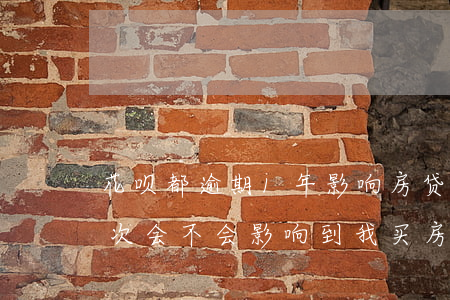 花呗都逾期1年影响房贷
次会不会影响到我买房